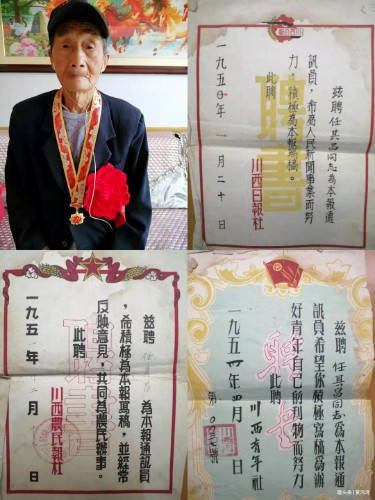 兹聘任其昌同志為本報通
訊員,希為人民新聞事業而努
力,積極為本報寫稿。
此聘
川西日報社
一九五〇年一月二十
聘書
兹聘 為本報通訊員
,希積極為本報寫稿,並經常
反映意見,共同為農民辦事。
此聘
川西農民報社
一九五一年 月 日
兹聘任其昌同志為本報通
訊員希望你積極寫稿為辦
好青年自己的刊物而努力
此聘
川西青年社
一九五一年四月 日